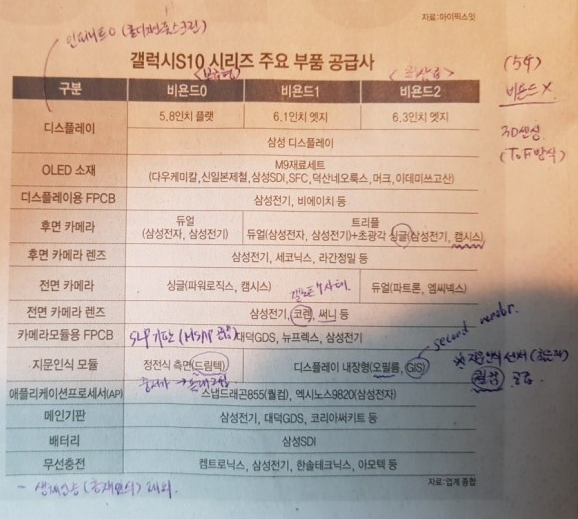 자료:아이픽스잇
인피니트O (홀디스플스크린)
갤럭시S10 시리즈 주요 부품 공급사
<보급형>
구분 비욘드0 비욘드1 비욘드2
(5G)
비욘드X
3D센싱
(ToF방식)
디스플레이 5.8인치 플랫 6.1인치 엣지 6.3인치 엣지
삼성 디스플레이
OLED 소재 M9재료세트
(다우케미칼,신일본제철,삼성SDI,SFC,덕산네오룩스,머크,이데미쓰고산)
디스플레이용 FPCB 삼성전기, 비에이치 등
후면 카메라 듀얼
(삼성전자, 삼성전기)
트리플
듀얼(삼성전자, 삼성전기)+초광각 싱글(삼성전기, 캠시스)
후면 카메라 렌즈 삼성전기, 세코닉스, 라간정밀 등
전면 카메라 싱글(파워로직스, 캠시스) 듀얼(파트론, 엠씨넥스)
전면 카메라 렌즈 삼성전기, 코렌, 써니 등
second vendor.
카메라모듈용 FPCB 대덕GDS, 뉴프렉스, 삼성전기
지문인식 모듈 정전식 측면(드림텍) 디스플레이 내장형(오필름, GIS)
퀄컴 공급
애플리케이션프로세서(AP) 스냅드래곤855(퀄컴), 엑시노스9820(삼성전자)
메인기판 삼성전기, 대덕GDS, 코리아써키트 등
배터리 삼성SDI
무선충전 켐트로닉스, 삼성전기, 한솔테크닉스, 아모텍 등
자료:업계 종합